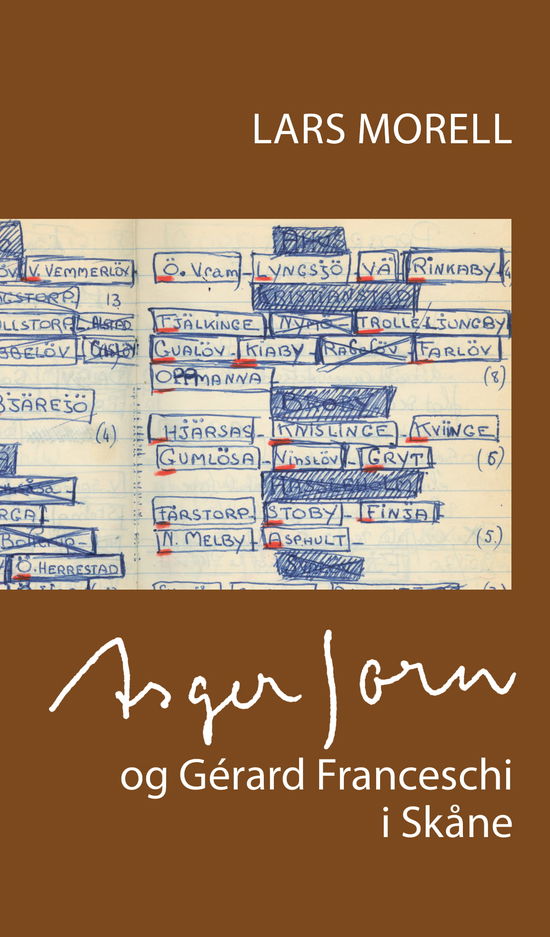 LARS MORELL
V. VEMMERLÖV
Ö. Vram - LYNGSJÖ VÄ RINKABY
13
FJÄLKINGE NYMÖ TROLLE LJUNGBY
GUALÖV KIABY FARLÖV
OPPMANNA (8)
BJÄRESJÖ
(4) HJÄRSAS - KNISLINGE KVIINGE
GUMLÖSA Vinslöv - GRYT (6)
FÄRSTORP STOBY - FINJA
N. MELBY ASPHULT - (5.)
Ö. HERRESTAD
Asger Jorn
og Gérard Franceschi
i Skåne